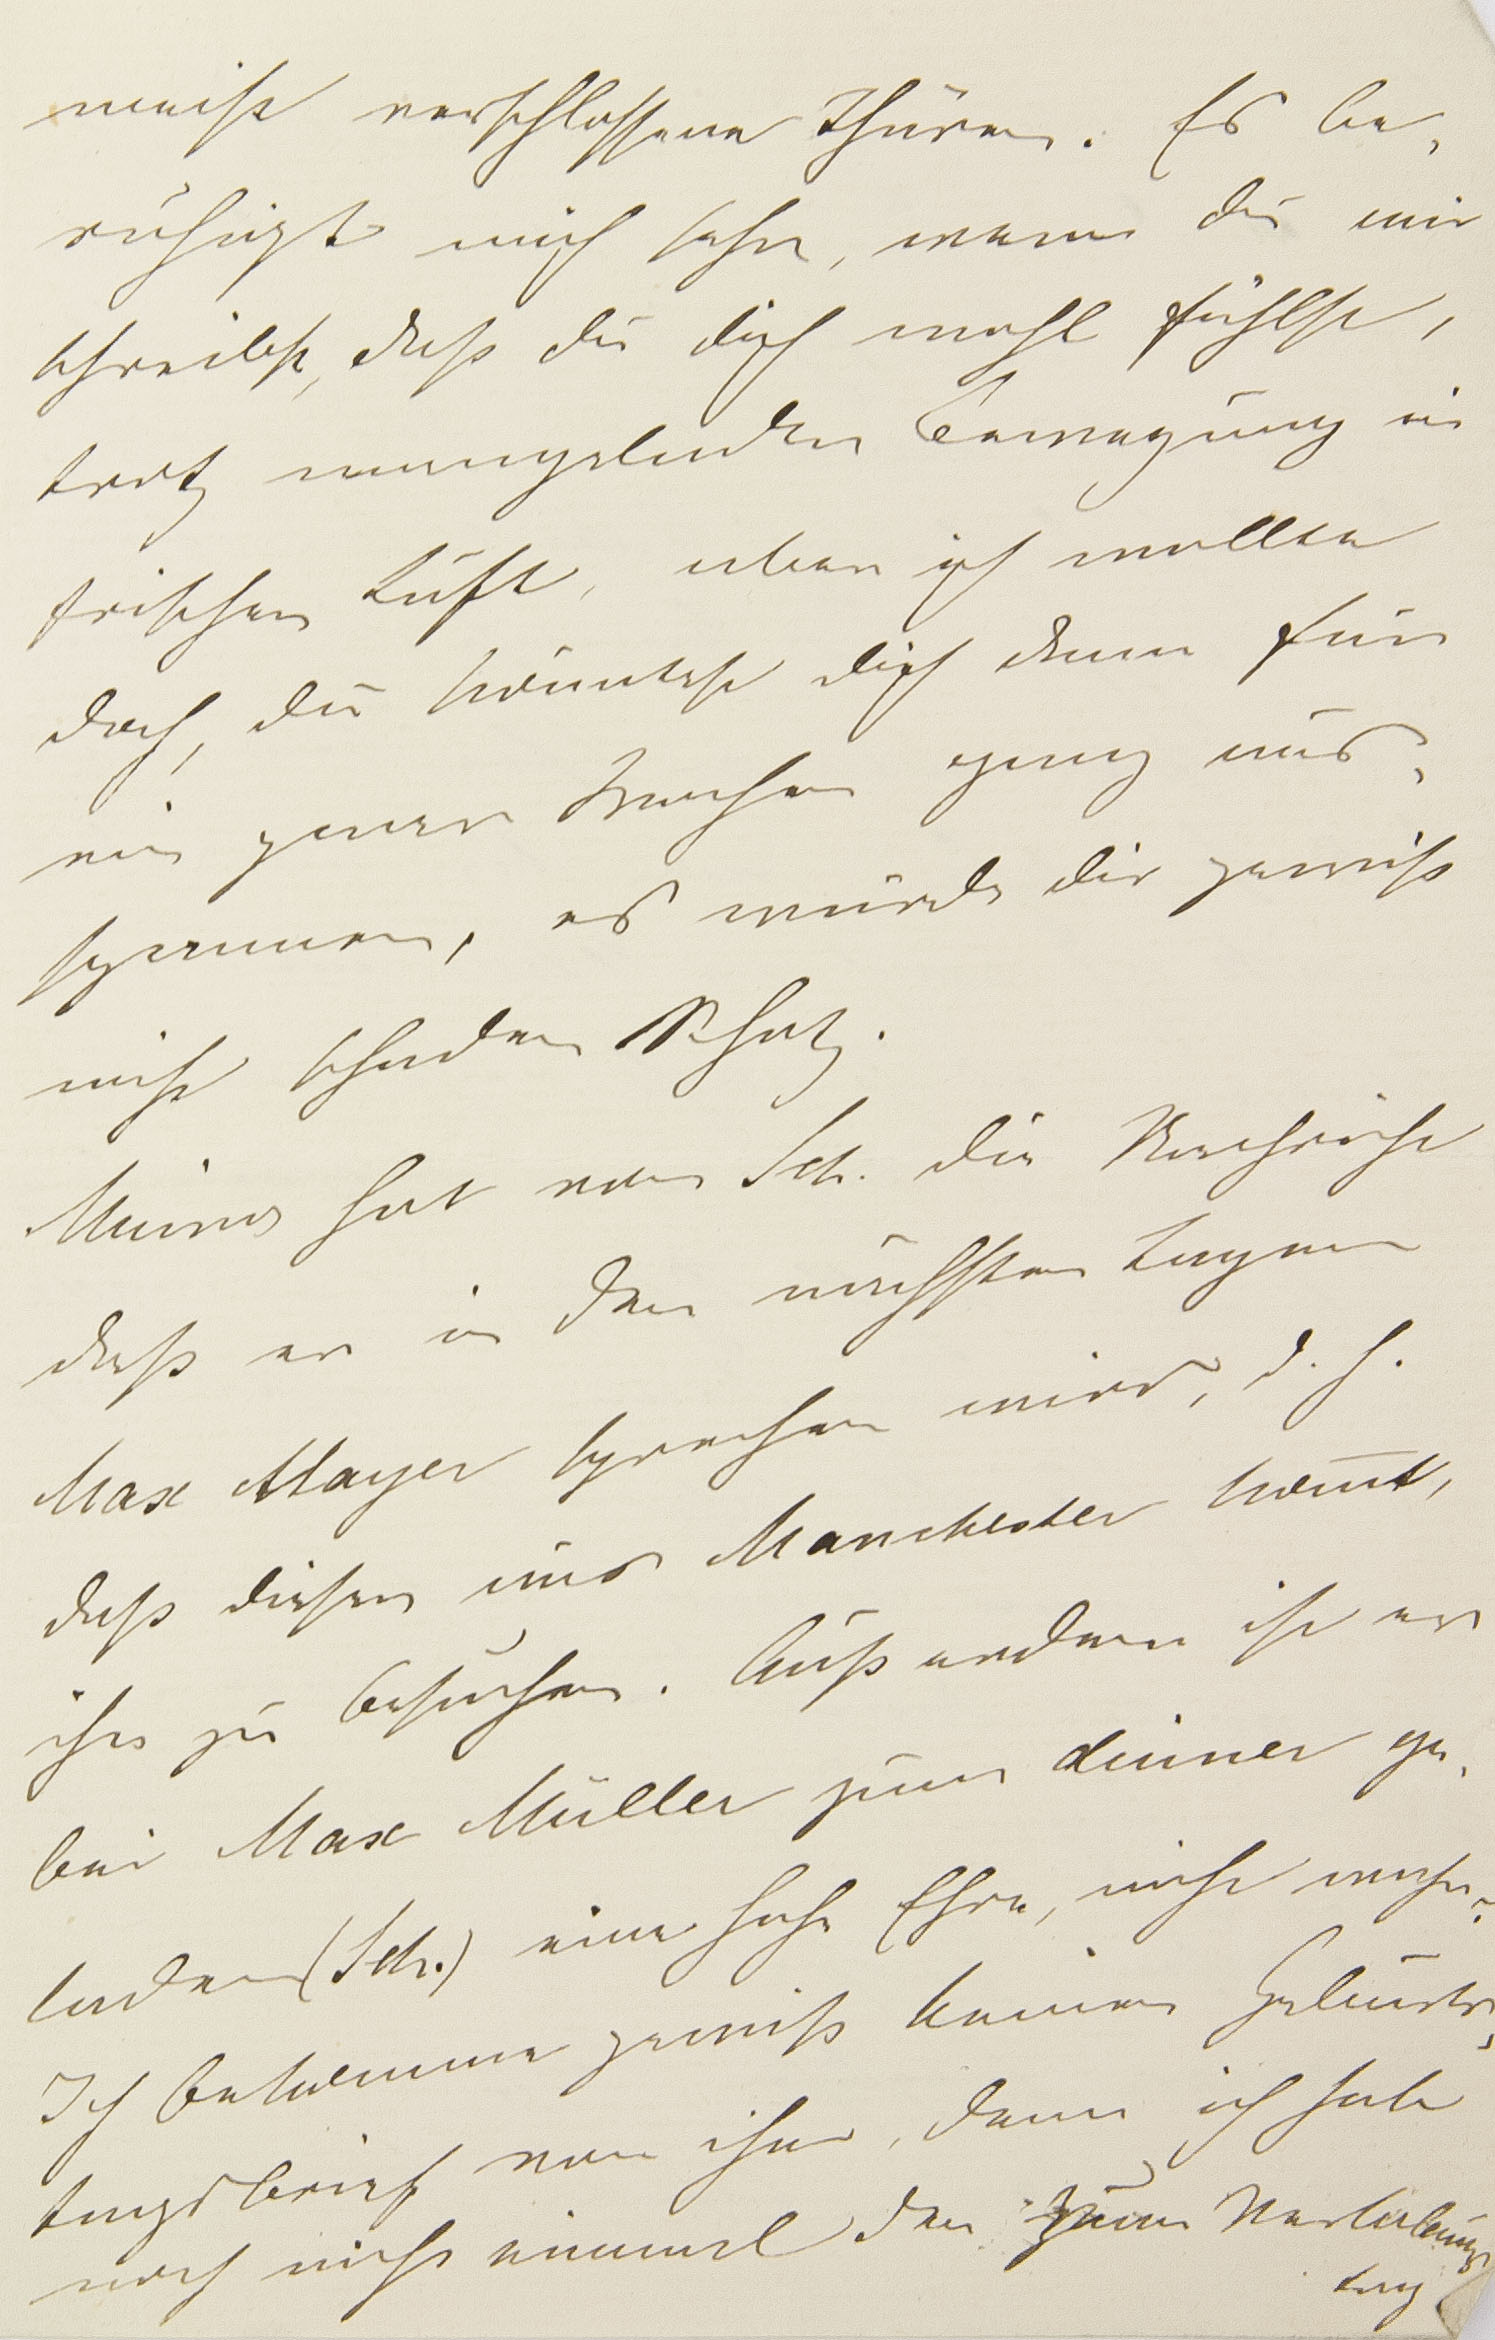 meist verschlossene Thüren. Es be-
ruhigt mich sehr, wenn du mir
schreibst, daß du dich wohl fühlst,
trotz mangelnder Bewegung in
frischer Luft, aber ich wollte
doch, du könntest dich dann für
ein paar Wochen ganz aus-
spannen, es würde dir gewiß
nicht schaden Schatz.
hat von Sch. die Nachricht
daß er in den nächsten Tagen
Max Mayer sprechen wird, d. h.
daß dieser aus Manchester kom̅t,
ihn zu besuchen. Außerdem ist er
bei Max Müller zum dinner ge-
laden (Sch.) eine hohe Ehre, nicht wahr?
Ich bekomme gewiß keinen Geburts-
tagsbrief von ihm, denn ich habe
noch nicht einmal den zum Verlobungs
tag